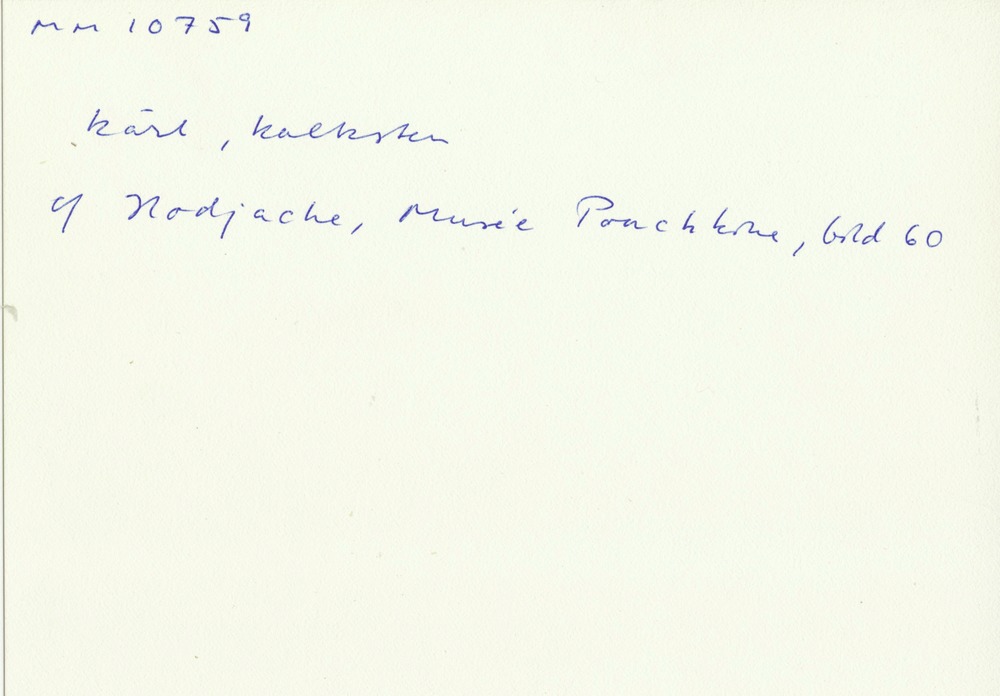 MM 10759
kärl, kalksten
cf Hodjache, Musée Pouchkine, bild 60